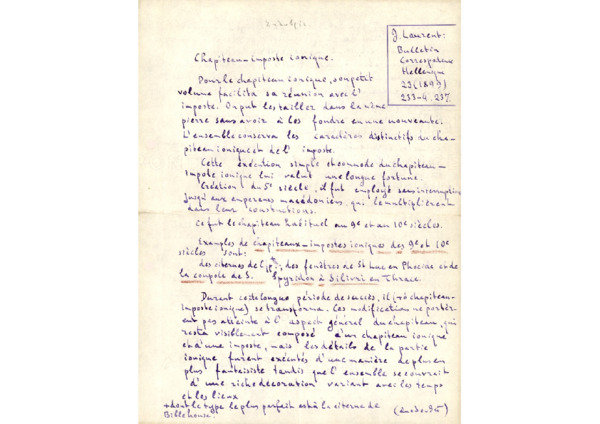 J. Laurent:
Bulletin
Correspondance
Hellenique
23 (1899)
233-4. 237.
Chapiteau-imposte ionique.
Pour le chapiteau ionique, son petit
volume facilita sa réunion avec l'
imposte. On put les tailler dans la même
pierre sans avoir à les fondre en une nouveauté.
L'ensemble conserva les caractères distinctifs du cha-
piteau ionique et de l' imposte.
Cette exécution simple et commode du chapiteau-
imposte ionique lui valut une longue fortune.
Création du 5e siècle, il fut employé sans interruption
jusqu'aux empereurs macédoniens, qui le multiplièrent
dans leur constructions.
Ce fut le chapiteau habituel au 9e et au 10e siècles.
Exemples de chapiteaux-impostes ioniques des 9e et 10e
siècles sont:
des citernes de l' des fenêtres de St Luc en Phocide et de
la coupole de S. Spyridon à Silivri en Thrace
Durant cette longue période de succès, il (→ ô chapiteau-
imposte ionique) se transforma. Ces modification ne portèr-
ent pas atteinte à l' aspect général du chapiteau, qui
resta visiblement composé d'un chapiteau ionique
et d'une imposte, mais les détails de la partie
ionique furent exécutés d'une manière de plus en
plus fantaisiste tandis que l' ensemble se couvrait
d' une riche décoration variant avec les temps
et les lieux
+ dont le type le plus parfait est à la citerne de
Bible house.